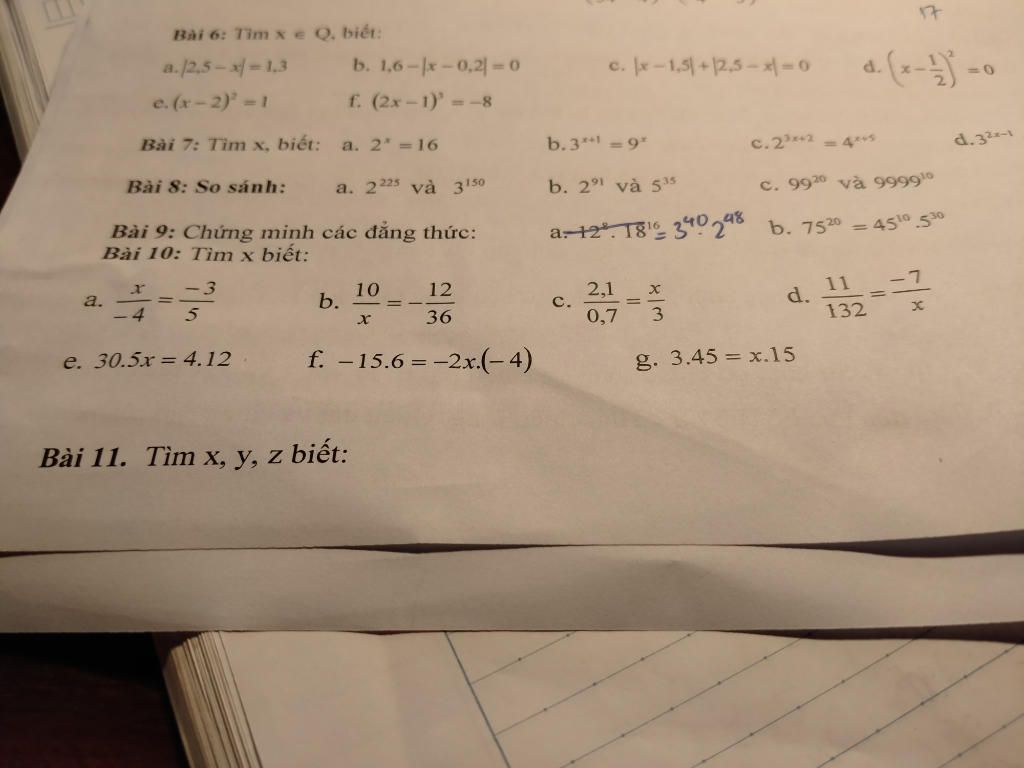 17
Bài 6: Tìm x ∈ Q, biết:
a. |2,5 – x| = 1,3 b. 1,6 – |x – 0,2| = 0 c. |x – 1,5| + |2,5 – x| = 0 d. (x – 1/2)² = 0
e. (x – 2)² = 1 f. (2x – 1)³ = –8
Bài 7: Tìm x, biết: a. 2ˣ = 16 b. 3ˣ⁺¹ = 9ˣ c. 2³ˣ⁺² = 4ˣ⁺⁵ d. 3²ˣ⁻¹
Bài 8: So sánh: a. 2²²⁵ và 3¹⁵⁰ b. 2⁹¹ và 5³⁵ c. 99²⁰ và 9999¹⁰
Bài 9: Chứng minh các đẳng thức: a. 12⁸ . 18¹⁶ = 3⁴⁰ . 2⁴⁸ b. 75²⁰ = 45¹⁰ .5³⁰
Bài 10: Tìm x biết:
a. x/–4 = –3/5 b. 10/x = –12/36 c. 2,1/0,7 = x/3 d. 11/132 = –7/x
e. 30.5x = 4.12 f. –15.6 = –2x.(– 4) g. 3.45 = x.15
Bài 11. Tìm x, y, z biết: